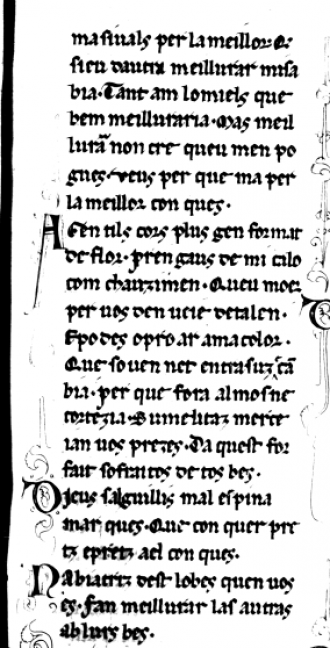 masiuals per la meillor. E
sieu dautra meillurar misa
bia. Tant am lo miels que
bem meilluraria. Mas meil
lurãnon cre queu men po
gues. veus per que ma per
la meillor con ques.
A Gen tils cors plus gen formar
de flor. pren gaus de mi calo
com chauzimen. Queu moer
per uos den ueie detalen.
E podes o proar a ma color.
Que so uen net entrasuz cã
bia. per que fora almosne
cortezia. Sumelitaz merce
ian uos prezes. Da quest for
fait sofraitos de tos bes.
Dieus salguillis mal espina
mar ques. Que con quer pre
tz e pretz a el con ques.
Na biatriz dest lo bes quen uos
es. fan meillurar las autras
ab lurs bes.